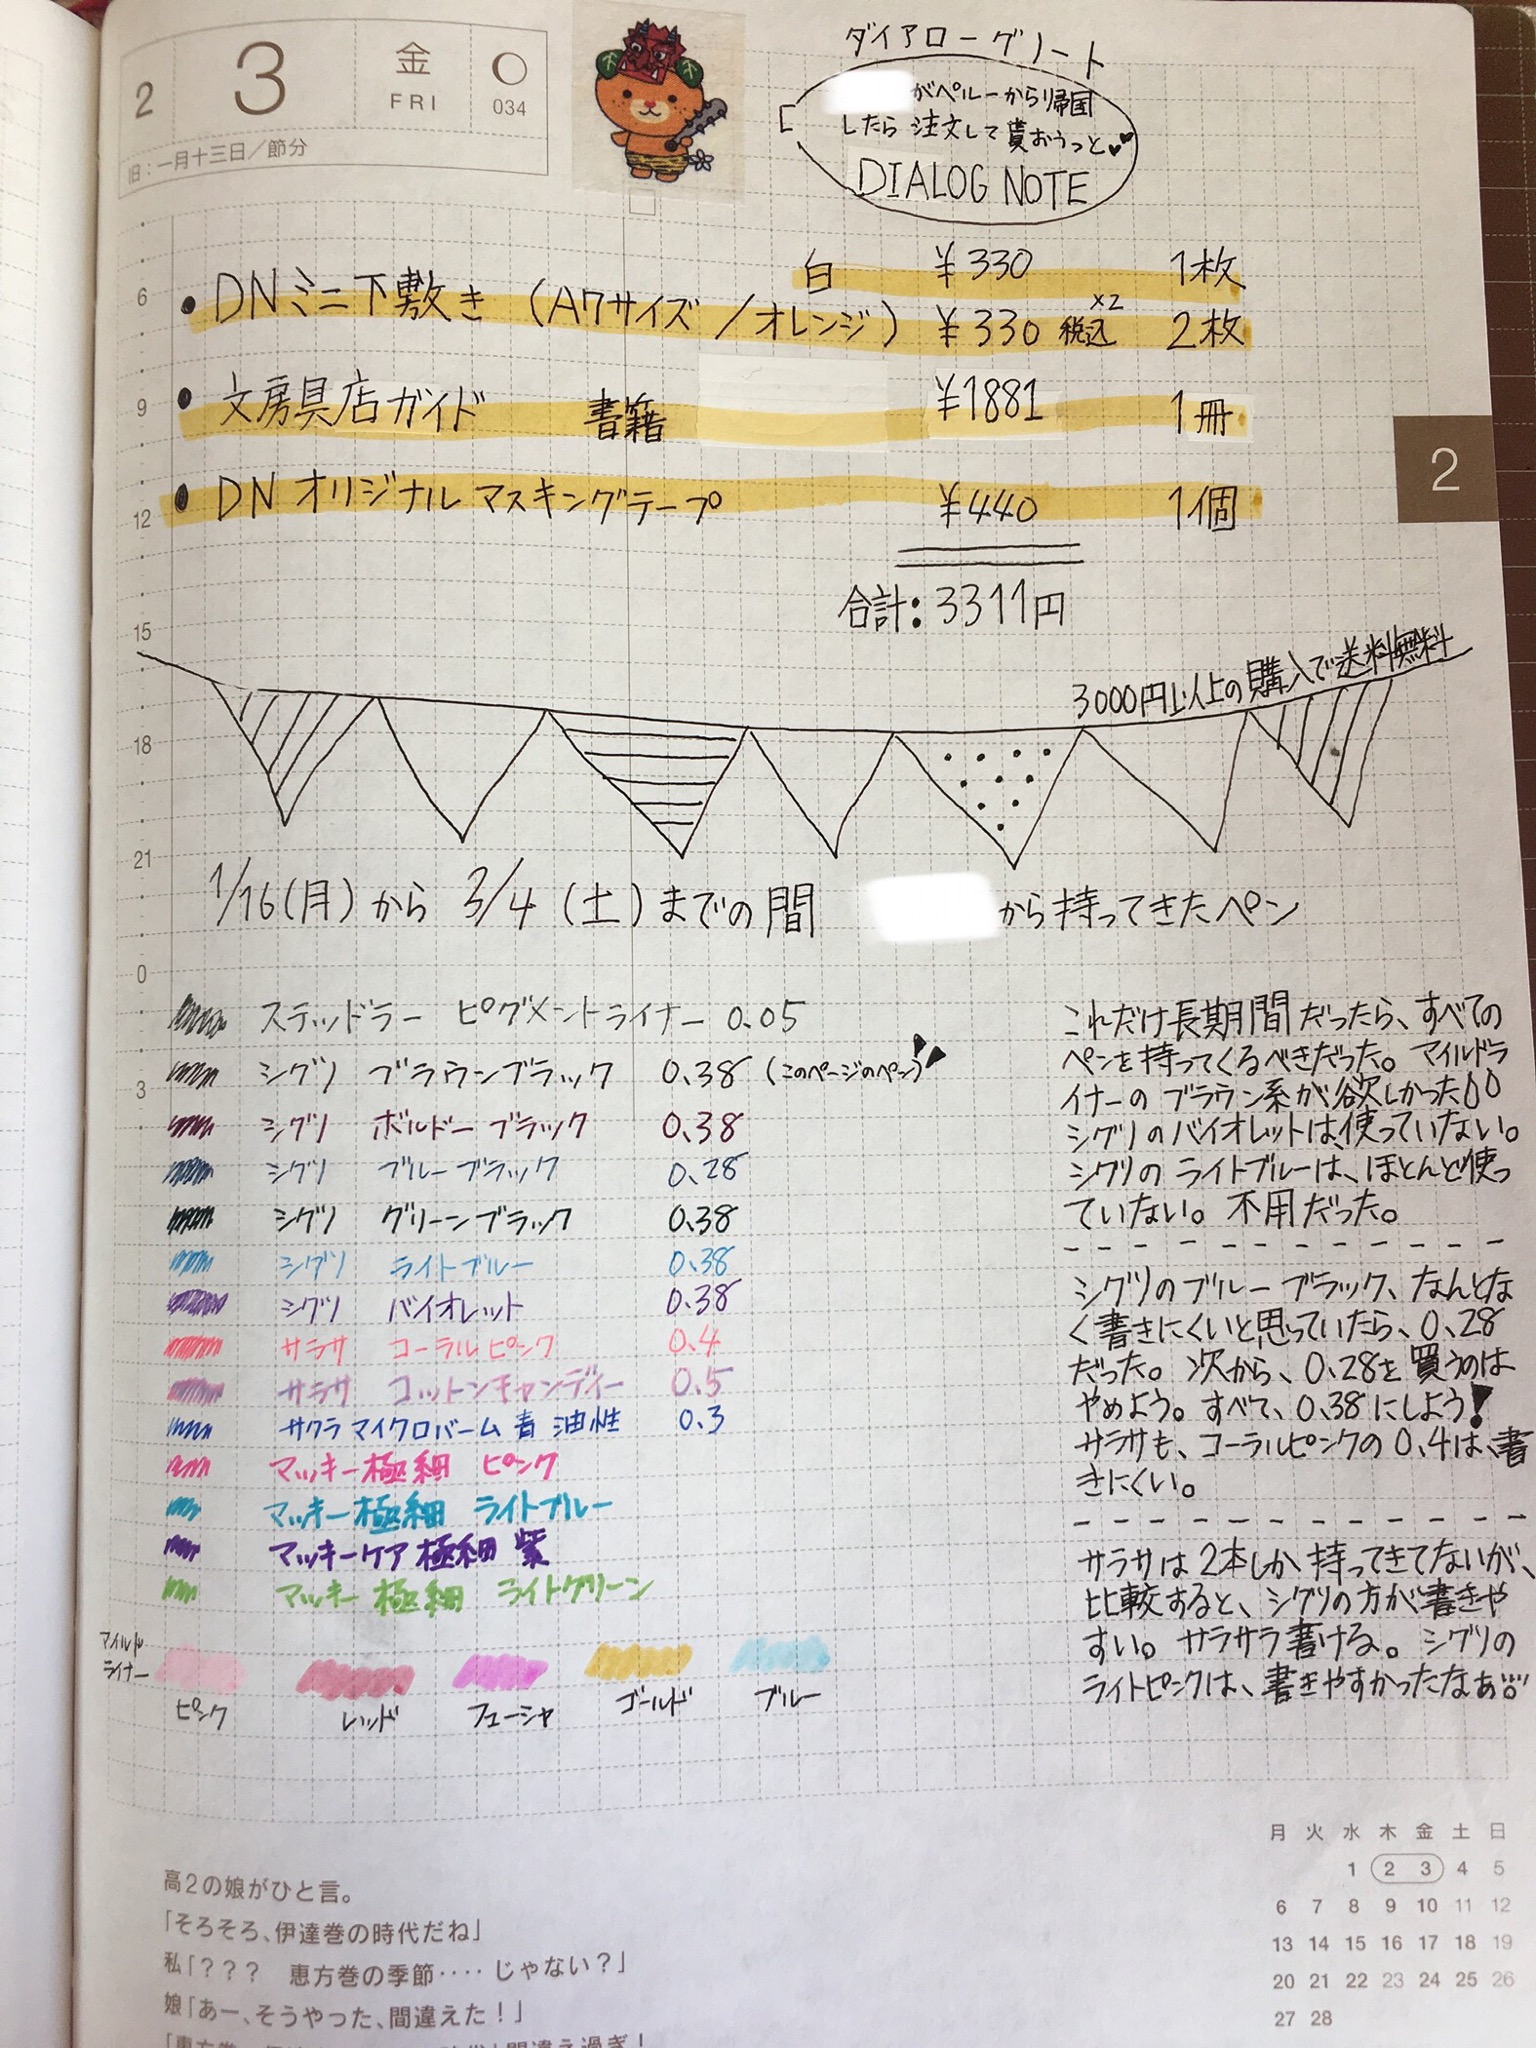 2 3 金 FRI 034
旧:一月十三日/節分
ダイアローグノート
がペルーから帰国
したら注文して貰おうっと
DIALOG NOTE
白 ¥330 1枚
6 • DNミニ下敷き (A7サイズ/オレンジ) ¥330 税込 ×2 2枚
9 • 文房具店ガイド 書籍 ¥1881 1冊
2
12 • DNオリジナルマスキングテープ ¥440 1個
合計:3311円
15
3000円以上の購入で送料無料
18
21
1/16(月)から3/4(土)までの間 から持ってきたペン
0
ステッドラー ピグメントライナー 0.05
シグノ ブラウンブラック 0.38 (このページのペン)
3
シグノ ボルドーブラック 0.38
シグノ ブルーブラック 0.28
シグノ グリーンブラック 0.38
シグノ ライトブルー 0.38
シグノ バイオレット 0.38
サラサ コーラルピンク 0.4
サラサ コットンキャンディー 0.5
サクラマイクロパーム 青 油性 0.3
マッキー極細 ピンク
マッキー極細 ライトブルー
マッキーケア極細 紫
マッキー極細 ライトグリーン
マイルド
ライナー
ピンク レッド フューシャ ゴールド ブルー
これだけ長期間だったら、すべての
ペンを持ってくるべきだった。マイルドラ
イナーのブラウン系が欲しかった
シグノのバイオレットは、使っていない。
シグノのライトブルーは、ほとんど使っ
ていない。不用だった。
シグノのブルーブラック、なんとな
く書きにくいと思っていたら、0.28
だった。次から、0.28を買うのは
やめよう。すべて、0.38にしよう!
サラサも、コーラルピンクの0.4は、書
きにくい。
サラサは2本しか持ってきてないが、
比較すると、シグノの方が書きや
すい。サラサラ書ける。シグノの
ライトピンクは、書きやすかったなぁ
高2の娘がひと言。
「そろそろ、伊達巻の時代だね」
私「??? 恵方巻の季節‥‥じゃない?」
娘「あー、そうやった、間違えた!」
月 火 水 木 金 土 日
1 2 3 4 5
6 7 8 9 10 11 12
13 14 15 16 17 18 19
20 21 22 23 24 25 26
27 28